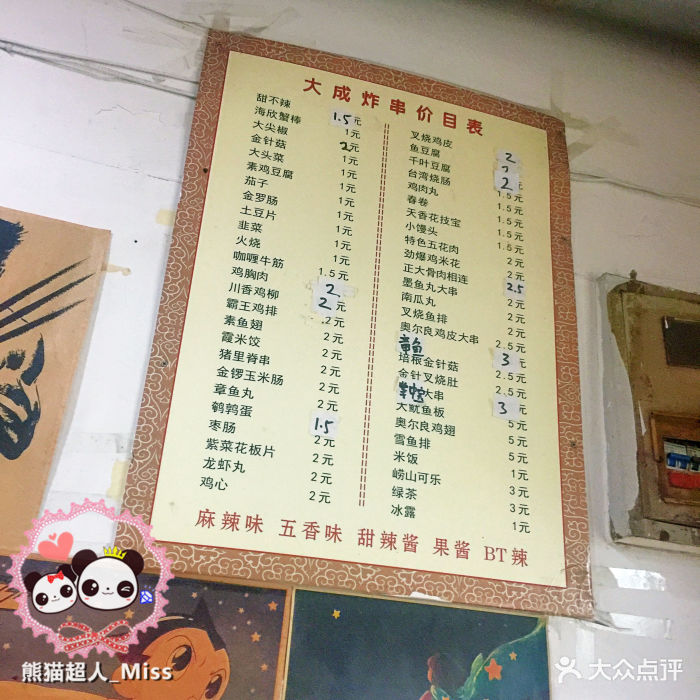 大成炸串价目表
甜不辣 1.5元
海欣蟹棒 1元
大尖椒 2元
金针菇 1元
大头菜 1元
素鸡豆腐 1元
茄子 1元
金罗肠 1元
土豆片 1元
韭菜 1元
火烧 1元
咖喱牛筋 1.5元
鸡胸肉 2
川香鸡柳 2
霸王鸡排 2元
素鱼翅 2元
霞米饺 2元
猪里脊串 2元
金锣玉米肠 2元
章鱼丸 2元
鹌鹑蛋 1.5
枣肠 2元
紫菜花板片 2元
龙虾丸 2元
鸡心 2元
叉烧鸡皮 2
鱼豆腐 2
千叶豆腐 2元
台湾烧肠 1.5元
鸡肉丸 1.5元
春卷 1.5元
天香花技宝 1.5元
小馒头 2元
特色五花肉 2元
劲爆鸡米花 2.5
正大骨肉相连 2元
墨鱼丸大串 2元
南瓜丸 2元
叉烧鱼排 2.5元
奥尔良鸡皮大串 3
黄鱼
培根金针菇 2.5元
金针叉烧肚 2.5元
大串 3
大鱿鱼板 5元
奥尔良鸡翅 5元
雪鱼排 5元
米饭 1元
崂山可乐 3元
绿茶 3元
冰露 1元
麻辣味 五香味 甜辣酱 果酱 BT辣
熊猫超人_Miss
大众点评